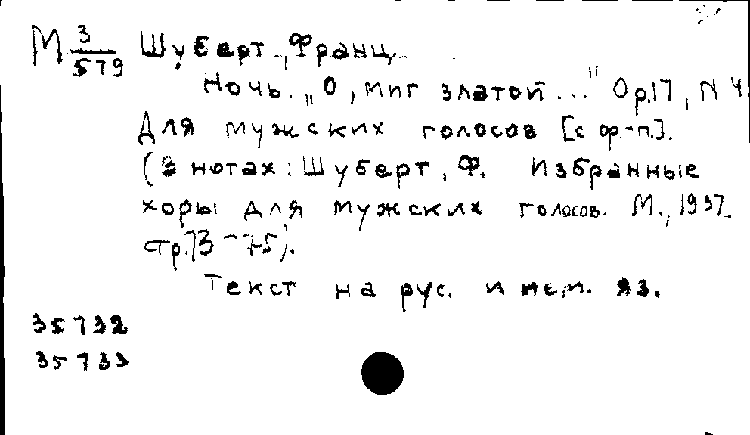 М 3/579 Шуберт, Франц.
Ночь. „О, миг златой..." Op.17, N 4.
Для мужских голосов [с ф-п.].
(В нотах: Шуберт, Ф. Избранные
хоры для мужских голосов. М., 1937.
стр. 73-75).
Текст на рус. и нем. яз.
35732
35733